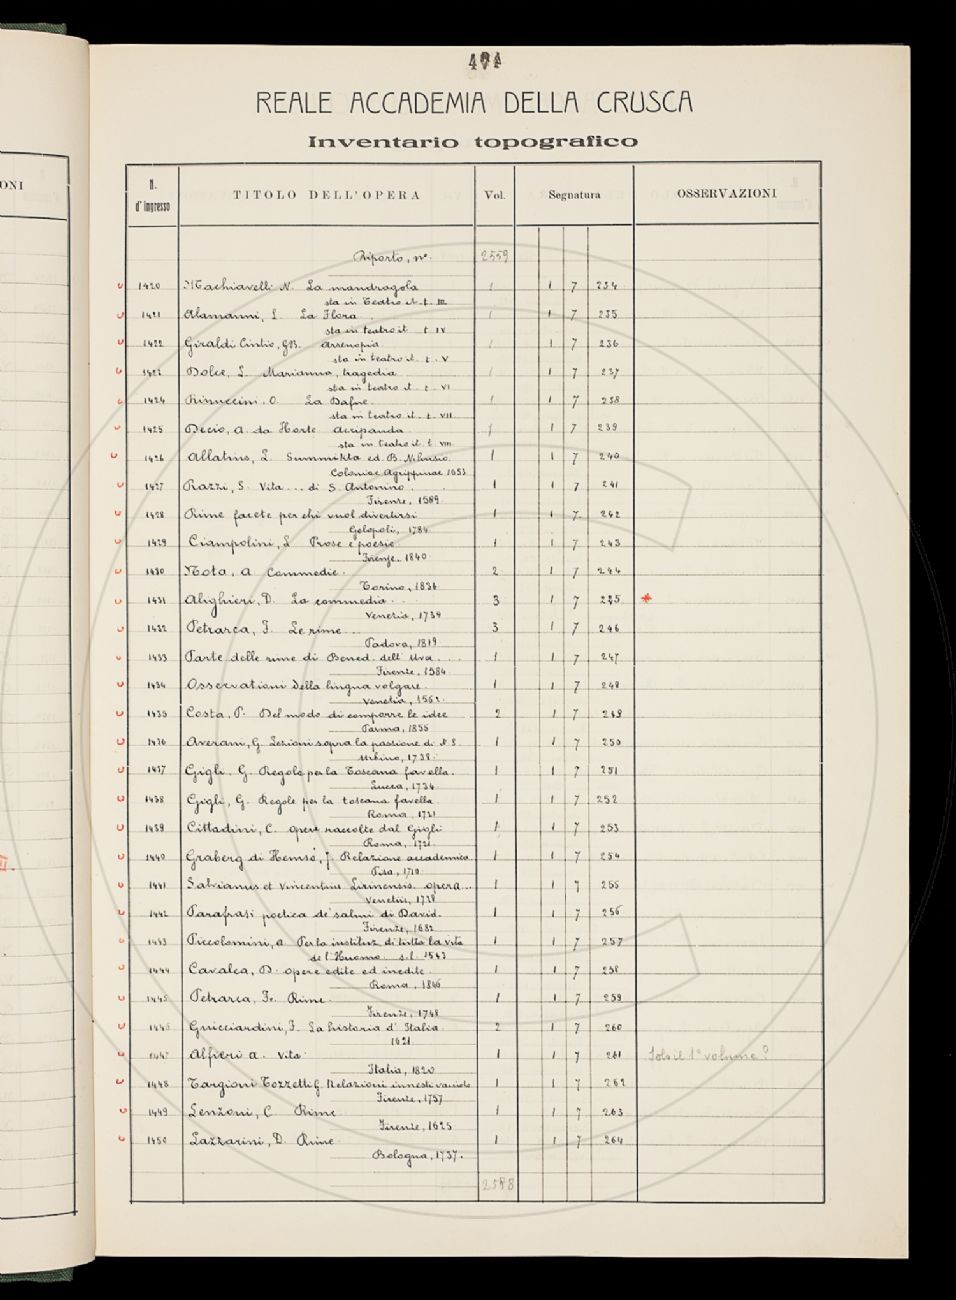 REALE ACCADEMIA DELLA CRUSCA
Inventario topografico
N. d'Ingresso TITOLO DELL'OPERA Vol. Segnatura OSSERVAZIONI
Riporto, n°. 2559
1420 Machiavelli N. La mandragola 1 1 7 234
sta in Teatro it. t. III
1421 Alamanni, L. La Flora 1 1 7 235
sta in teatro it t IV
1422 Giraldi Cintio, GB. Arrenopia 1 1 7 236
sta in teatro it. t. V
1423 Dolce, L. Marianna, tragedia 1 1 7 237
sta in teatro it t. VI
1424 Rinuccini, O. La Dafne. 1 1 7 238
sta in teatro it. t. VII
1425 Decio, A. da Horte Acripanda 1 1 7 239
sta in teatro it. t. VIII
1426 Allatius, L. Summikta ed. B. Nihusio 1 1 7 240
Coloniae Agrippinae 1653
1427 Razzi, S. Vita ... di S. Antonino. 1 1 7 241
Firenze, 1589
1428 Rime facete per chi vuol divertirsi 1 1 7 242
Gelopoli, 1784
1429 Ciampolini, L. Prose e poesie 1 1 7 243
Firenze, 1840
1430 Nota, A Commedie. 2 1 7 244
Torino, 1836
1431 Alighieri, D. La commedia. . . 3 1 7 245 *
Venezia, 1739
1432 Petrarca, F. Le rime ... 3 1 7 246
Padova, 1819
1433 Parte delle rime di Bened. dell' Uva. . . . 1 1 7 247
Firenze, 1584
1434 Osservationi della lingua volgare. 1 1 7 248
Venetia, 1562.
1435 Costa, P. Del modo di comporre le idee 2 1 7 249
Parma, 1835
1436 Averani, G. Lezioni sopra la passione di N. S. 1 1 7 250
Urbino, 1738.
1437 Gigli, G. Regole per la Toscana favella. 1 1 7 251
Lucca, 1734
1438 Gigli, G. Regole per la toscana favella 1 1 7 252
Roma, 1721
1439 Cittadini, C. opere raccolte dal Gigli 1 1 7 253
Roma, 1721.
1440 Graberg di Hemsö, J. Relazione accademica 1 1 7 254
Pisa,
1441 Salvianus et Vincentius Lirinensis. opera ... 1 1 7 255
Venetiis, 1728
1442 Parafrasi poetica de' salmi di David. 1 1 7 256
Firenze, 1682
1443 Piccolomini, A. Per la instituz. di tutta la vita 1 1 7 257
de l'Huomo. s.l. 1543
1444 Cavalca, D. opere edite ed inedite 1 1 7 258
Roma, 1846
1445 Petrarca, Fr. Rime. 1 1 7 259
Firenze, 1748
1446 Guicciardini, F. La historia d' Italia. 2 1 7 260
1621
1447 Alfieri A. Vita. 1 1 7 261 Solo il 1° volume?
Italia, 1820
1448 Targioni Tozzetti G. Relazioni innesti vaiolo 1 1 7 262
Firenze, 1757
1449 Lenzoni, C. Rime 1 1 7 263
Firenze, 1625
1450 Lazzarini, D. Rime. 1 1 7 264
Bologna, 1737.
2598